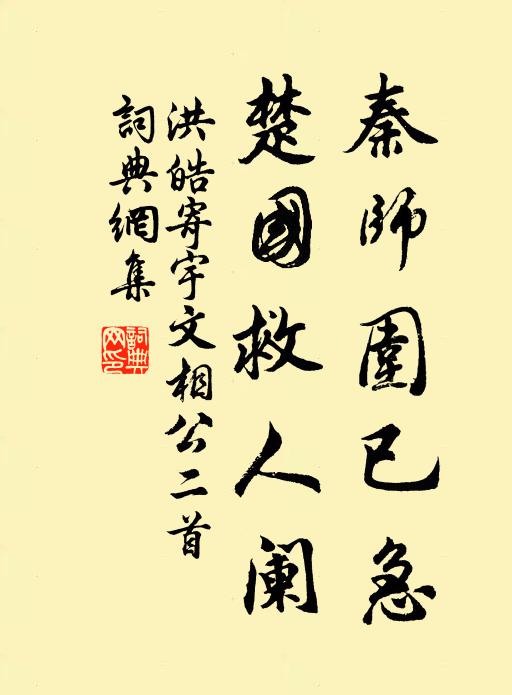 秦師圍已急
楚國救人闌
洪皓寄宇文相公二首
詞典網集
詞典網印